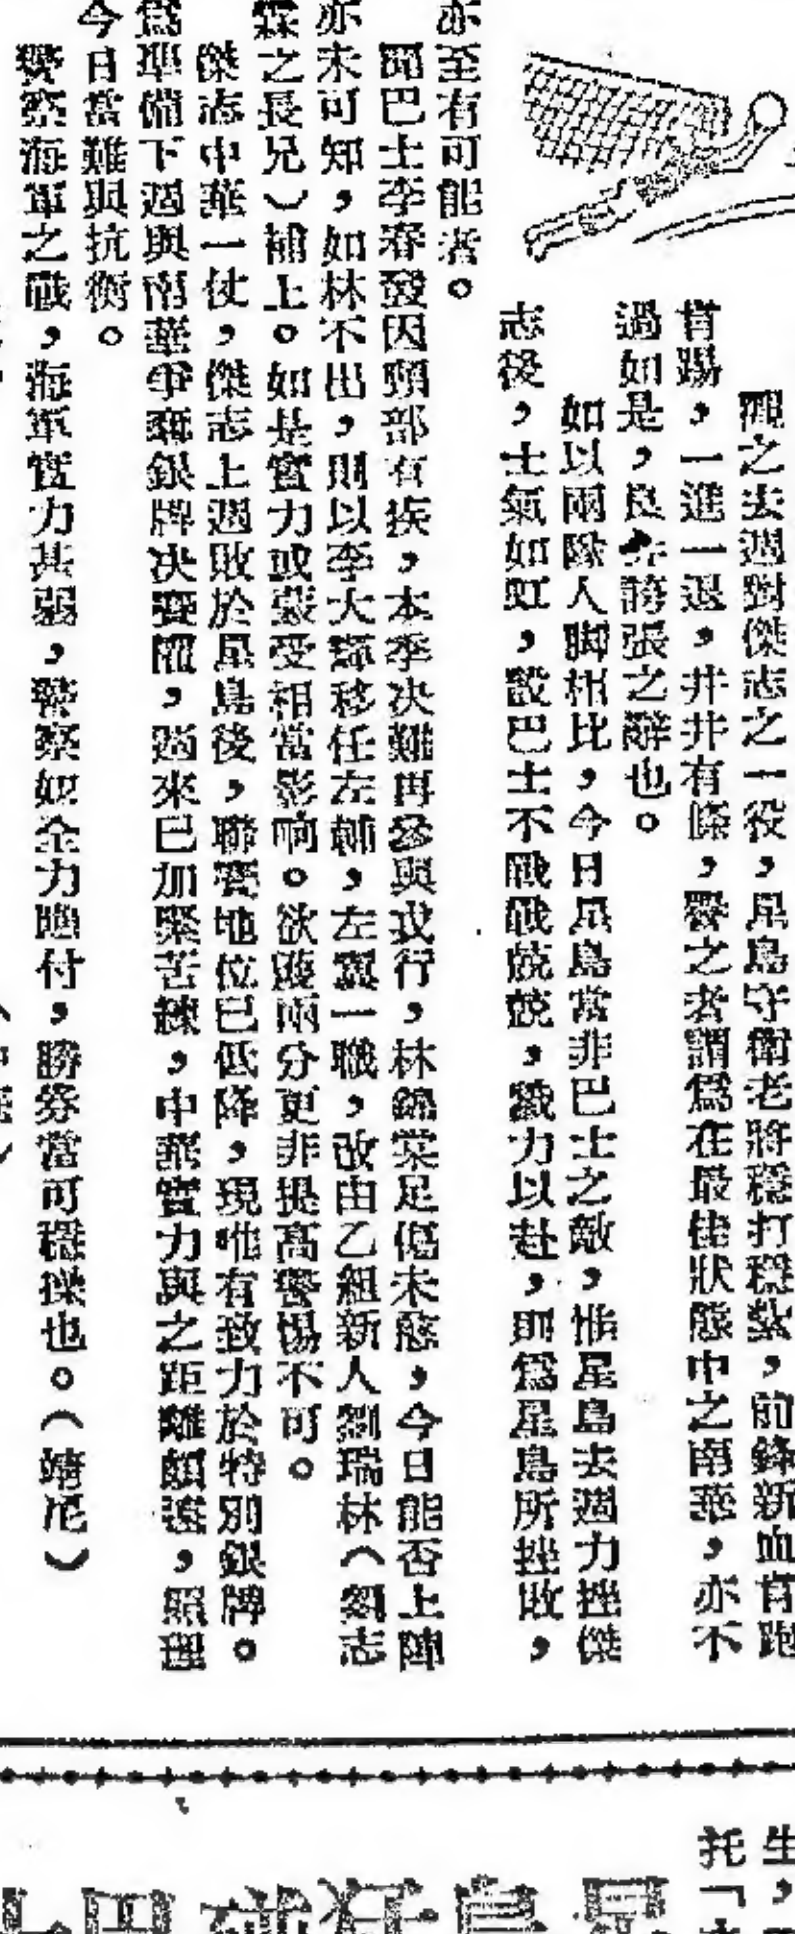 觀之去週對傑志之一役，星島守衛老將穩打穩紮，前鋒新血肯跑
肯踢，一進一退，井井有條，譽之者謂爲在最佳狀態中之南華，亦不
過如是，良非誇張之辭也。
如以兩隊人脚相比，今日星島當非巴士之敵，惟星島去週力挫傑
志後，士氣如虹，設巴士不戰戰兢兢，戮力以赴，則爲星島所挫敗，
亦至有可能者。
聞巴士李春發因頸部有疾，本季决難再參與戎行，林錦棠足傷未癒，今日能否上陣
亦未可知，如林不出，則以李大輝移任左輔，左翼一職，改由乙組新人劉瑞林（劉志
霖之長兄）補上。如是實力或蒙受相當影响。欲獲兩分更非提高警惕不可。
傑志中華一仗，傑志上週敗於星島後，聯賽地位已低降，現惟有致力於特別銀牌。
爲準備下週與南華爭奪銀牌决賽權，過來已加緊苦練，中華實力與之距離頗遠，照理
今日當難與抗衡。
警察海軍之戰，海軍實力甚弱，警察如全力應付，勝券當可穩操也。（靖尼）
生，
托「
星島
巴